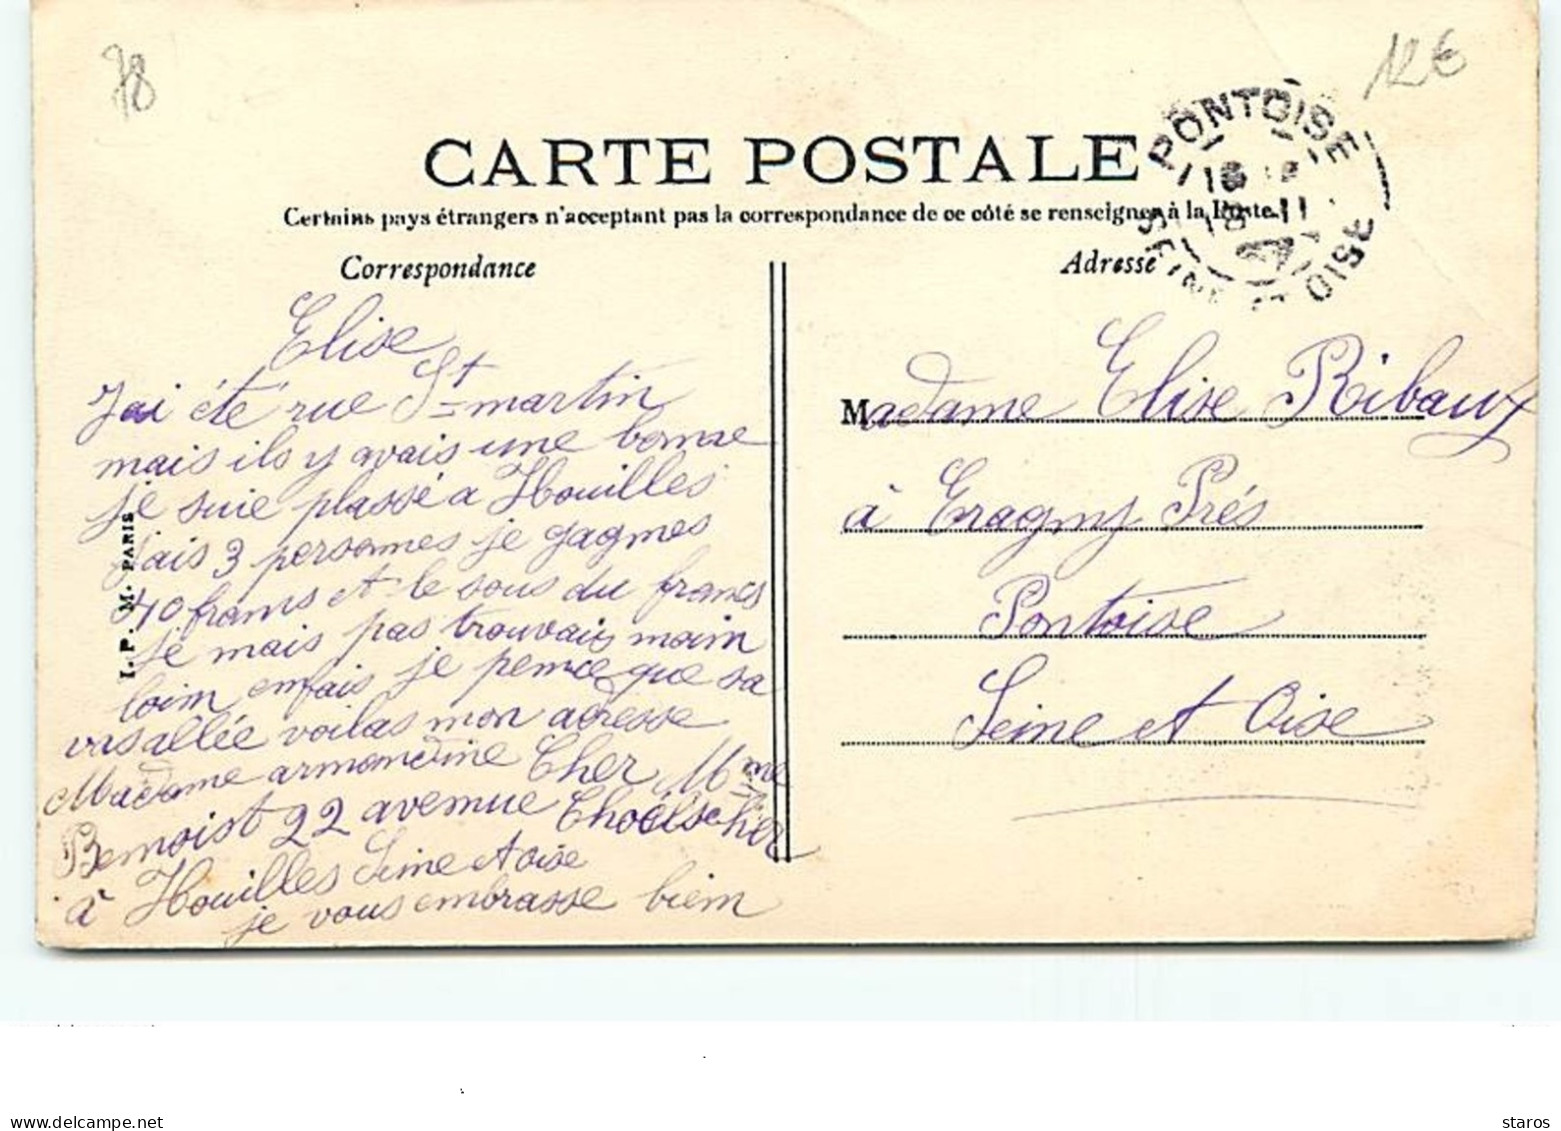 78
12€
CARTE POSTALE
Certains pays étrangers n'acceptant pas la correspondance de ce côté se renseigner à la Poste.
Correspondance
Adresse
PONTOISE
SEINE ET OISE
I. P. M. PARIS
Elise
J'ai été rue St martin
mais ils y avais une bonne
je suie plassé a Houilles
jais 3 personnes je gagnes
40 frams et le sous du francs
je mais pas trouvais moin
loin enfais je pence que sa
vas allée voilas mon adresse
Madame armandine Cher Mme
Benoist 22 avenue Choelscher
à Houilles Seine et oise
je vous embrasse bien
Madame Elise Ribaux
à Eragny Prés
Pontoise
Seine et Oise
www.delcampe.net
staros